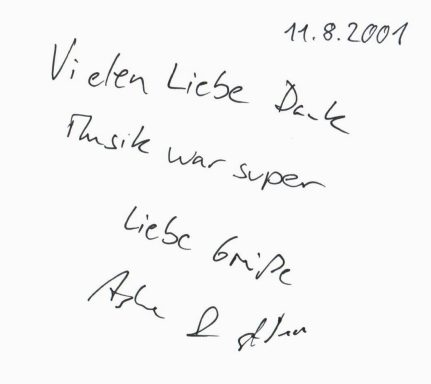 11.8.2001
Vielen Liebe Dank
Musik war super
Liebe Grüße